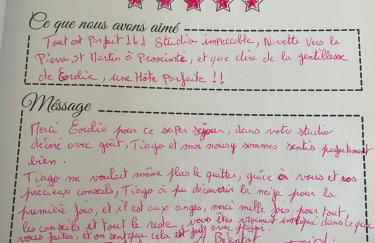 Ce que nous avons aimé
Tout est Parfait !!! Studio impeccable, Navette vers la
Pierre St Martin à Proximité, et que dire de la gentillesse
de Coralie, une Hôte Parfaite !!
Méssage
Merci Coralie pour ce super séjour, dans votre studio
décoré avec goût, Tiago et moi nous sommes sentis parfaitement
bien.
Tiago ne voulait même plus le quitter, grâce à vous et vos
précieux conseils, Tiago a pu découvrir la neige pour la
première fois, et il est aux anges, merci mille fois pour tout,
les conseils et tout le reste, vous êtes vraiment impliqué dans ce que
vous faites, et on sent que cela est fait avec plaisir.
A Bientot